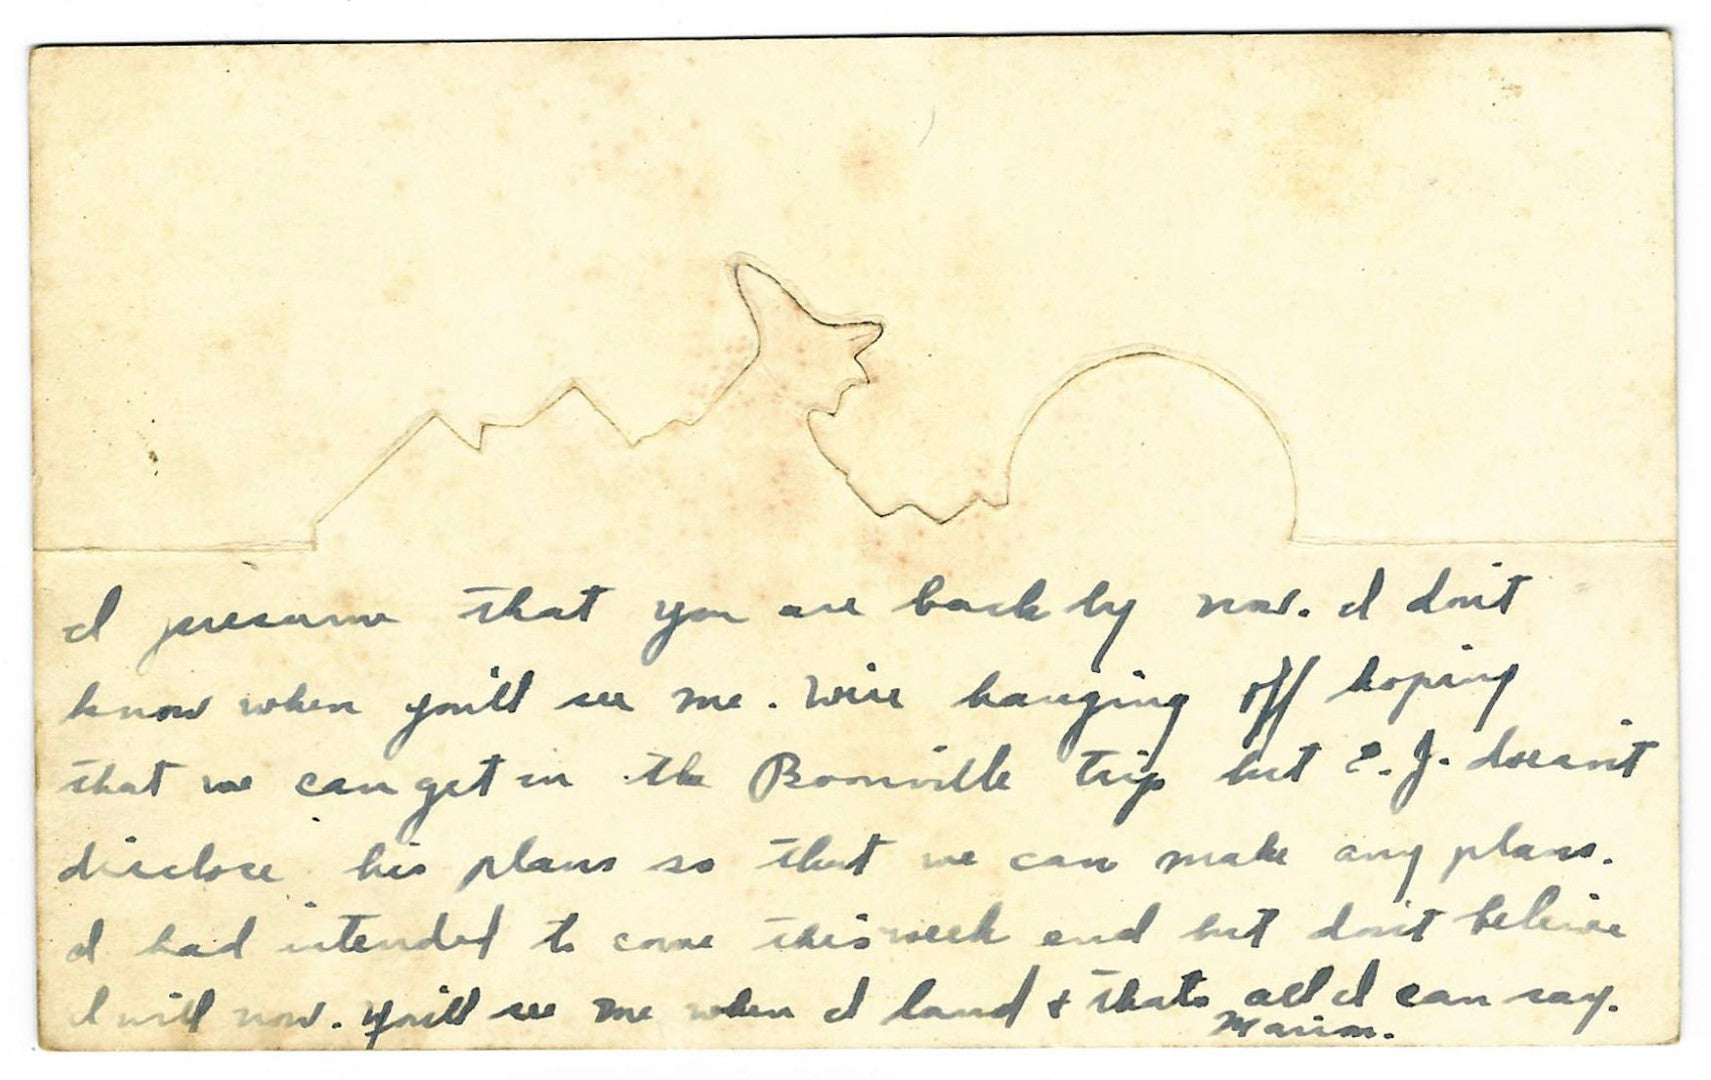 I presume that you are back by now. I don't
know when you'll see me. We're hanging off hoping
that we can get in the Boonville trip but E. J. doesn't
disclose his plans so that we can make any plans.
I had intended to come this week end but don't believe
I will now. You'll see me when I land + thats all I can say.
Marion.